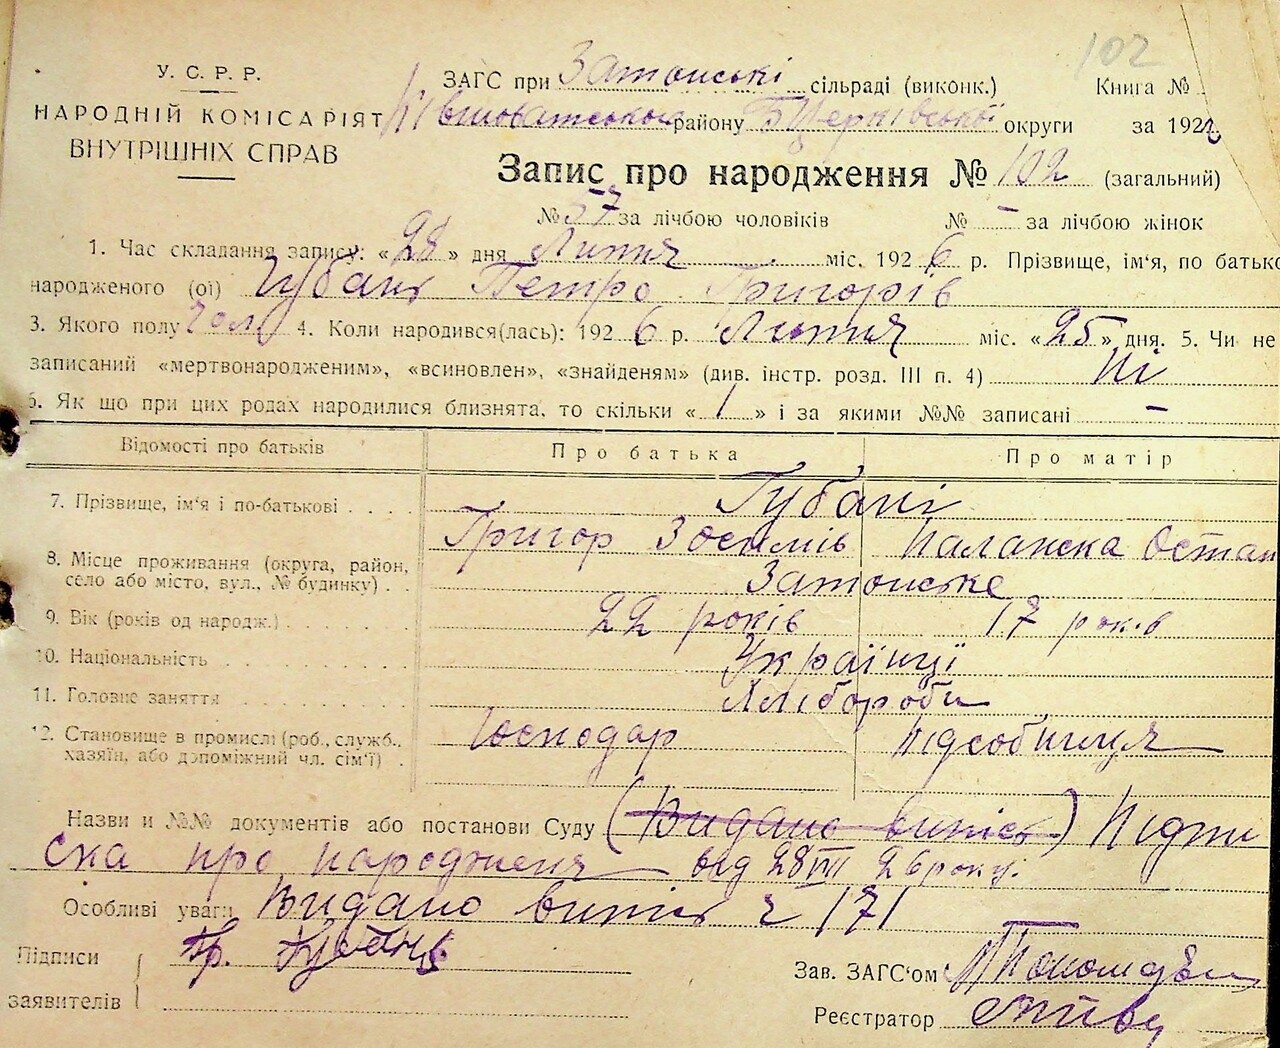 102
У. С. Р. Р.
НАРОДНІЙ КОМІСАРІЯТ
ВНУТРІШНІХ СПРАВ
ЗАГС при Затонські сільраді (виконк.) Книга №
району БЦерківської округи за 192
Запис про народження № 102 (загальний)
№ 57 за лічбою чоловіків № – за лічбою жінок
1. Час складання запису: «28» дня Липня міс. 1926 р. Прізвище, ім'я, по батько
народженого (ої) Губань Петро Григорів
3. Якого полу чол 4. Коли народився(лась): 1926 р. Липня міс. «25» дня. 5. Чи не
записаний «мертвонародженим», «всиновлен», «знайденям» (див. інстр. розд. III п. 4) Ні
6. Як що при цих родах народилися близнята, то скільки «1» і за якими №№ записані –
Відомості про батьків Про батька Про матір
7. Прізвище, ім'я і по-батькові . . . . Губані
Григор Зосимів Палажка Остап
8. Місце проживання (округа, район,
село або місто, вул., № будинку) . . Затонське
9. Вік (років од народж.) 22 років 17 років
10. Національність Українці
11. Головне заняття Хлібороби
12. Становище в промислі (роб., служб.,
хазяїн, або допоміжний чл. сім'ї) . Господар Підсобниця
Назви и №№ документів або постанови Суду (Видано випис) Підпи
ска про народженя від 28 VII 26 року.
Особливі уваги Видано випис ч 171
Підписи
заявителів
Гр. Губань
Зав. ЗАГС'ом
Реєстратор